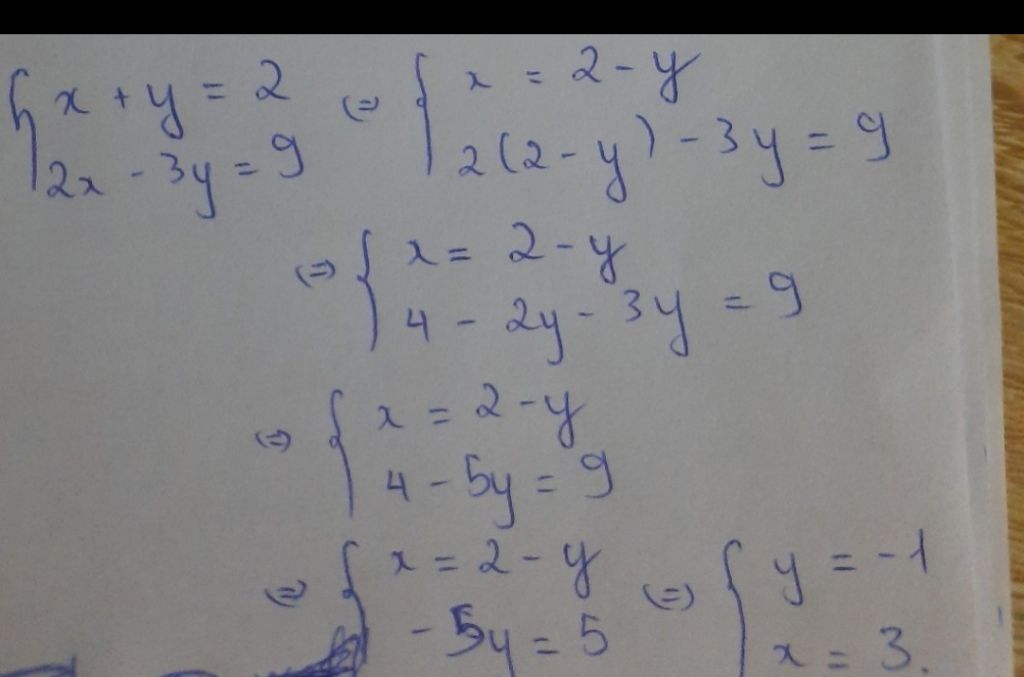 { x + y = 2 ⇔ { x = 2 - y
2x - 3y = 9 2(2 - y) - 3y = 9
⇔ { x = 2 - y
4 - 2y - 3y = 9
⇔ { x = 2 - y
4 - 5y = 9
⇔ { x = 2 - y ⇔ { y = -1
-5y = 5 x = 3.